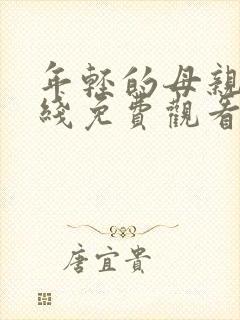 年轻的母亲
綫免費觀看
唐宜貴